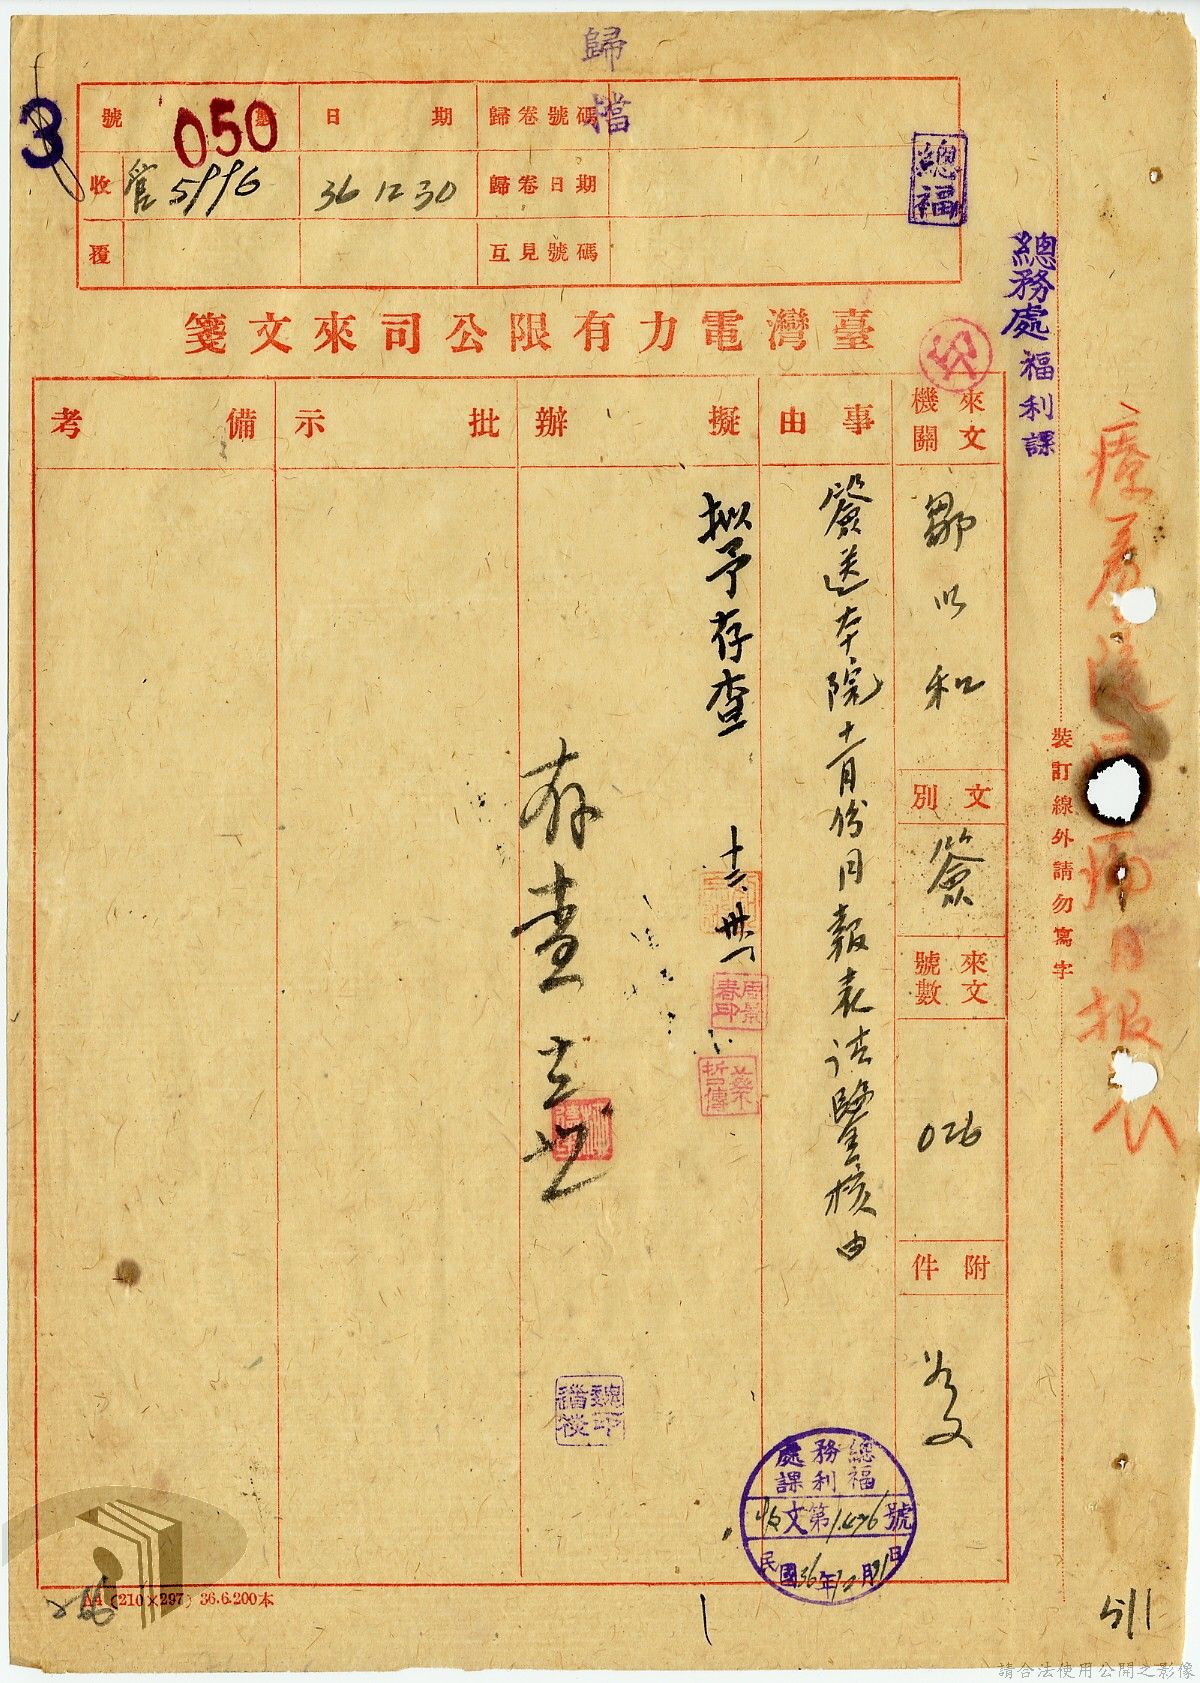 歸檔
3
號 050
日期
歸卷號碼
收 管5996
36 12 30
歸卷日期
覆
互見號碼
總福
總務處福利課
臺灣電力有限公司來文箋
來文機關
事由
擬辦
批示
備考
鄒以和
文別
簽
來文號數
026
附件
簽送本院十一月份月報表請鑒核由
擬予存查
十二、卅一
存查
裝訂線外請勿寫字
總務處
福利課
收文第1476號
民國36年12月31日
A4 (210×297) 36.6.200本
511
請合法使用公開之影像